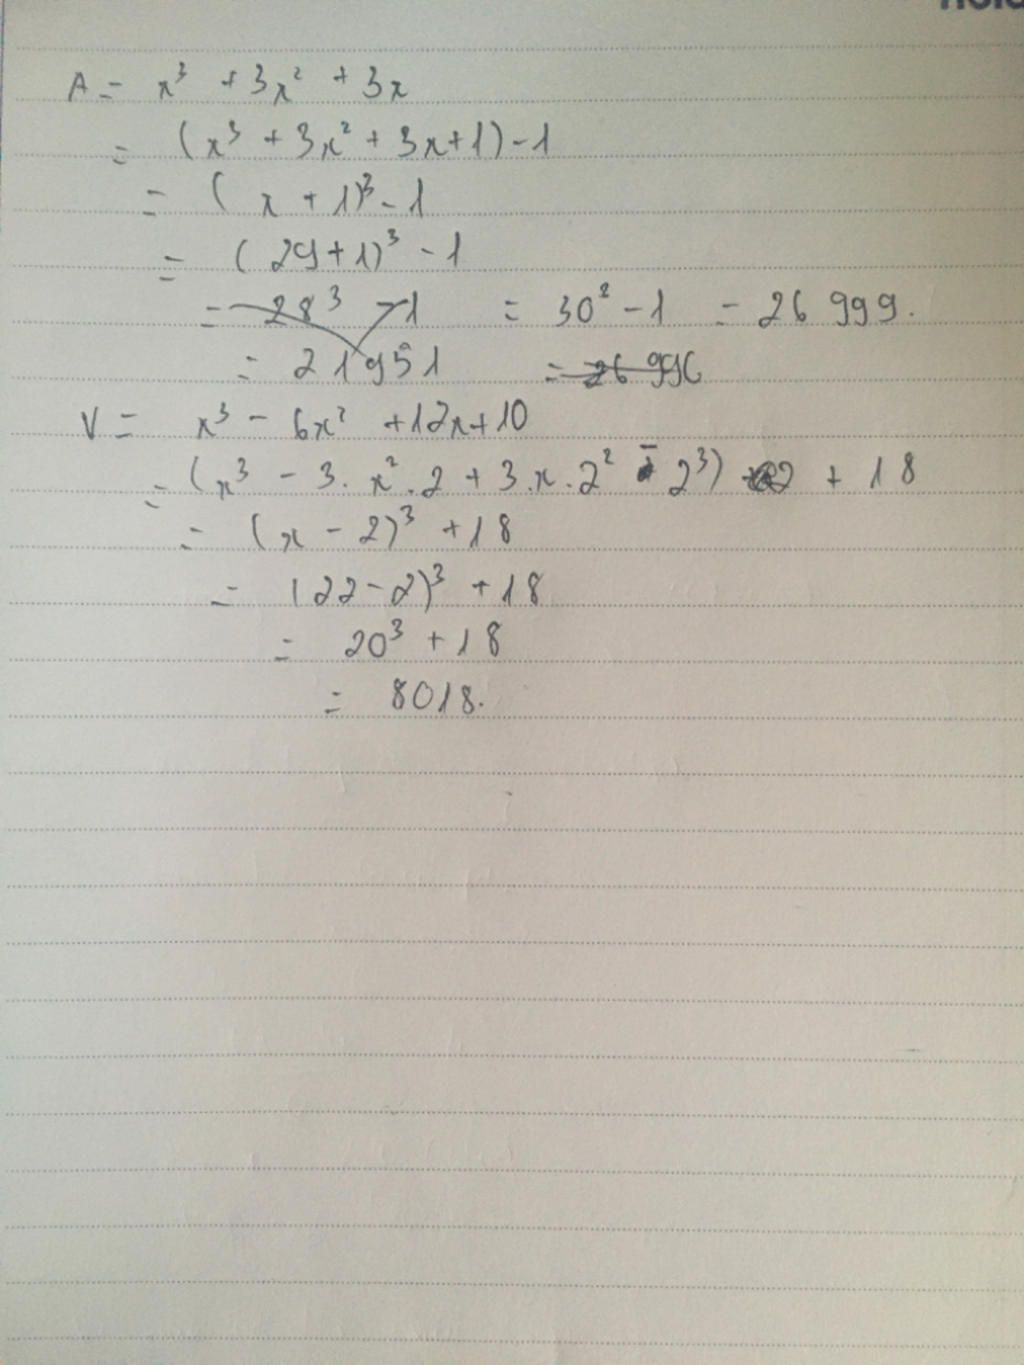 A = x³ + 3x² + 3x
= (x³ + 3x² + 3x+1) - 1
= (x + 1)³ - 1
= (29+1)³ - 1
= 28³ - 1 = 30² - 1 = 26 999.
= 21951 = 26 996
V = x³ - 6x² + 12x + 10
= (x³ - 3. x². 2 + 3. x. 2² - 2³) + 18
= (x - 2)³ + 18
= (22 - 2)³ + 18
= 20³ + 18
= 8018.